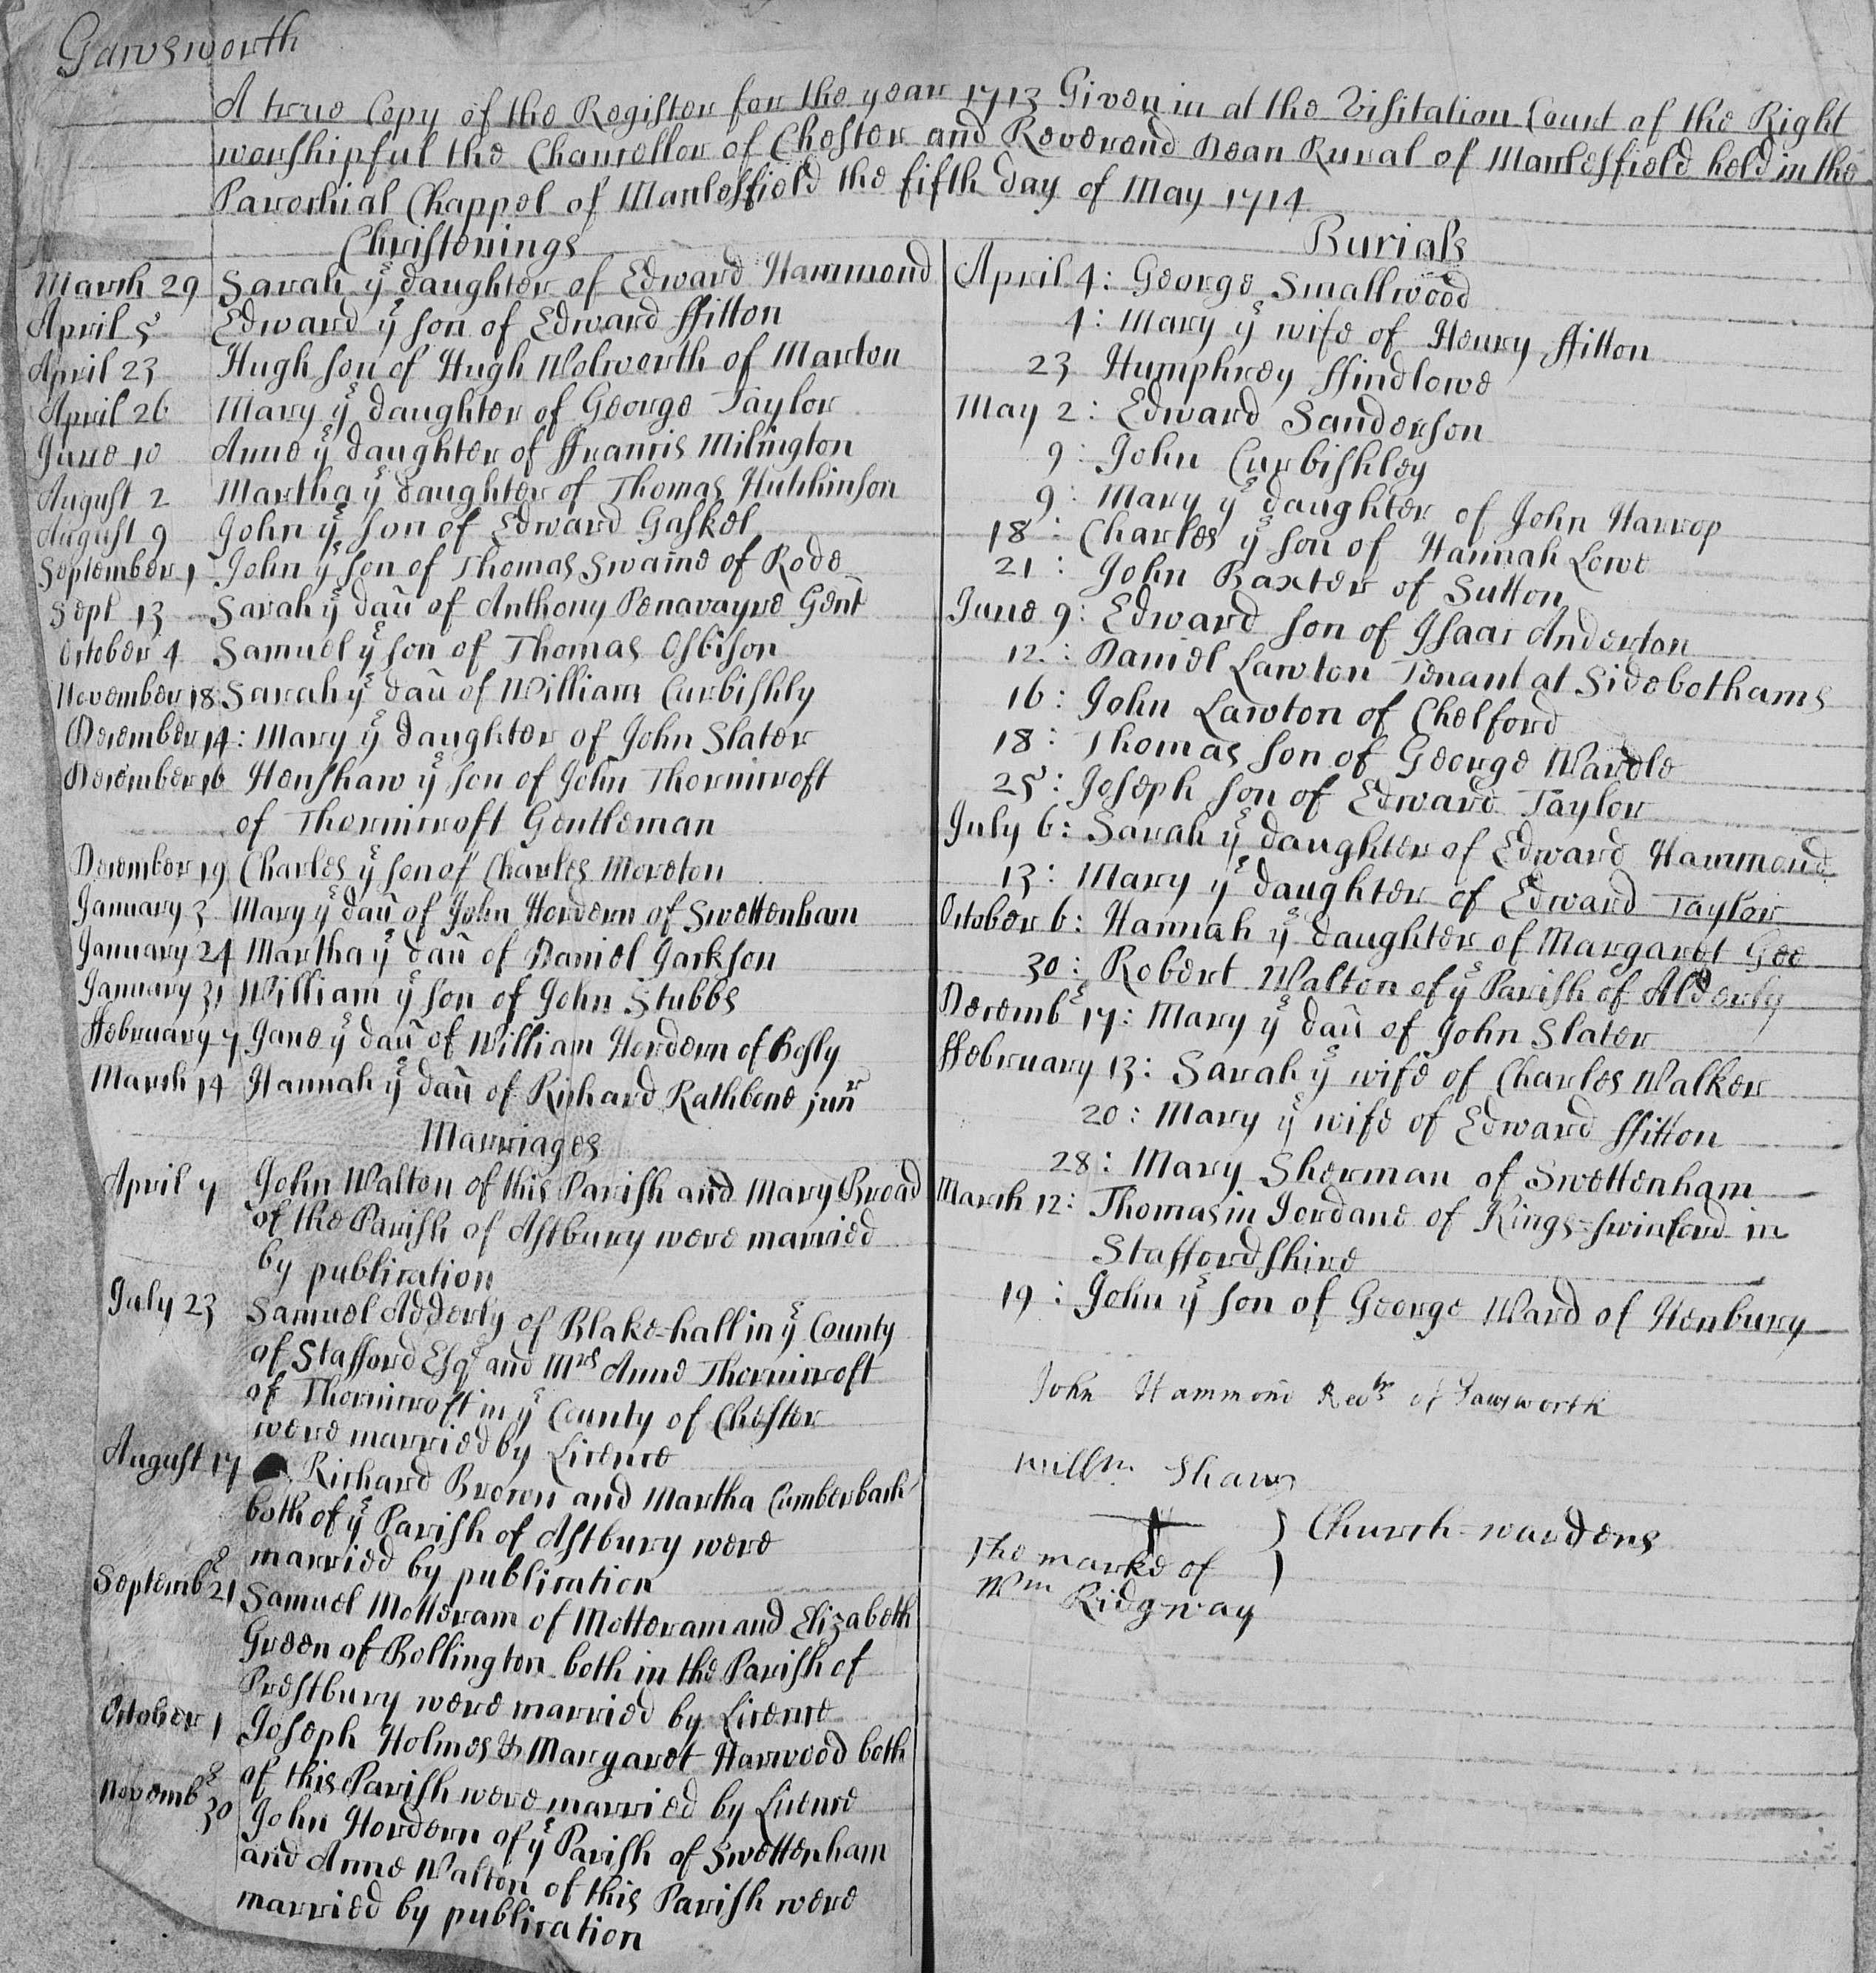 Gawsworth
A true Copy of the Register for the year 1713 Given in at the Visitation Court of the Right
worshipful the Chancellor of Chester and Reverend Dean Rural of Macclesfield held in the
Parochial Chappel of Macclesfield the fifth day of May 1714
Christenings
March 29 Sarah yᵉ daughter of Edward Hammond
April 5 Edward yᵉ son of Edward ffitton
April 23 Hugh son of Hugh Wolworth of Marton
April 26 Mary yᵉ daughter of George Taylor
June 10 Anne yᵉ daughter of ffrancis Milington
August 2 Martha yᵉ daughter of Thomas Hutchinson
August 9 John yᵉ son of Edward Gaskel
September 1 John yᵉ son of Thomas Swaine of Rode
Sept 13 Sarah yᵉ dau̅ of Anthony Penavayre Gent
October 4 Samuel yᵉ son of Thomas Osbison
November 18 Sarah yᵉ dau̅ of William Curbishly
December 14: Mary yᵉ daughter of John Slater
December 16 Henshaw yᵉ son of John Thornicroft
of Thornicroft Gentleman
December 19 Charles yᵉ son of Charles Moreton
January 3 Mary yᵉ dau̅ of John Hordern of Swettenham
January 24 Martha yᵉ dau̅ of Daniel Jackson
January 31 William yᵉ son of John Stubbs
ffebruary 7 Jane yᵉ dau̅ of William Hordern of Bosly
March 14 Hannah yᵉ dau̅ of Richard Rathbone junʳ
Marriages
April 7 John Walton of this Parish and Mary Broad
of the Parish of Astbury were married
by publication
July 23 Samuel Adderly of Blake-hall in yᵉ County
of Stafford Esqʳ and Mʳˢ Anne Thornicroft
of Thornicroft in yᵉ County of Chester
were married by Licence
August 17 Richard Brown and Martha Cumberbach
both of yᵉ Parish of Astbury were
married by publication
Septembʳ 21 Samuel Motteram of Motteram and Elizabeth
Green of Bollington both in the Parish of
Prestbury were married by Licence
October 1 Joseph Holmes & Margaret Harwood both
of this Parish were married by Licence
Novembʳ 30 John Hordern of yᵉ Parish of Swettenham
and Anne Walton of this Parish were
married by publication
Burials
April 4: George Smallwood
4: Mary yᵉ wife of Henry ffitton
23 Humphrey ffindlowe
May 2: Edward Sanderson
9: John Curbishley
9: Mary yᵉ daughter of John Harrop
18: Charles yᵉ son of Hannah Lowe
21: John Baxter of Sutton
June 9: Edward son of Isaac Anderton
12: Daniel Lawton Tenant at Sidebothams
16: John Lawton of Chelford
18: Thomas son of George Wardle
25: Joseph son of Edward Taylor
July 6: Sarah yᵉ daughter of Edward Hammond
13: Mary yᵉ daughter of Edward Taylor
October 6: Hannah yᵉ daughter of Margaret Gee
30: Robert Walton of yᵉ Parish of Alderly
Decembʳ 17: Mary yᵉ dau̅ of John Slater
ffebruary 13: Sarah yᵉ wife of Charles Walker
20: Mary yᵉ wife of Edward ffitton
28: Mary Sherman of Swettenham
March 12: Thomasin Jordane of Kings-swinford in
Staffordshire
19: John yᵉ son of George Ward of Henbury
John Hammond Recᵗʳ of Gawsworth
Willm Shaw
Church-wardens
The marke of
Wm Ridgway